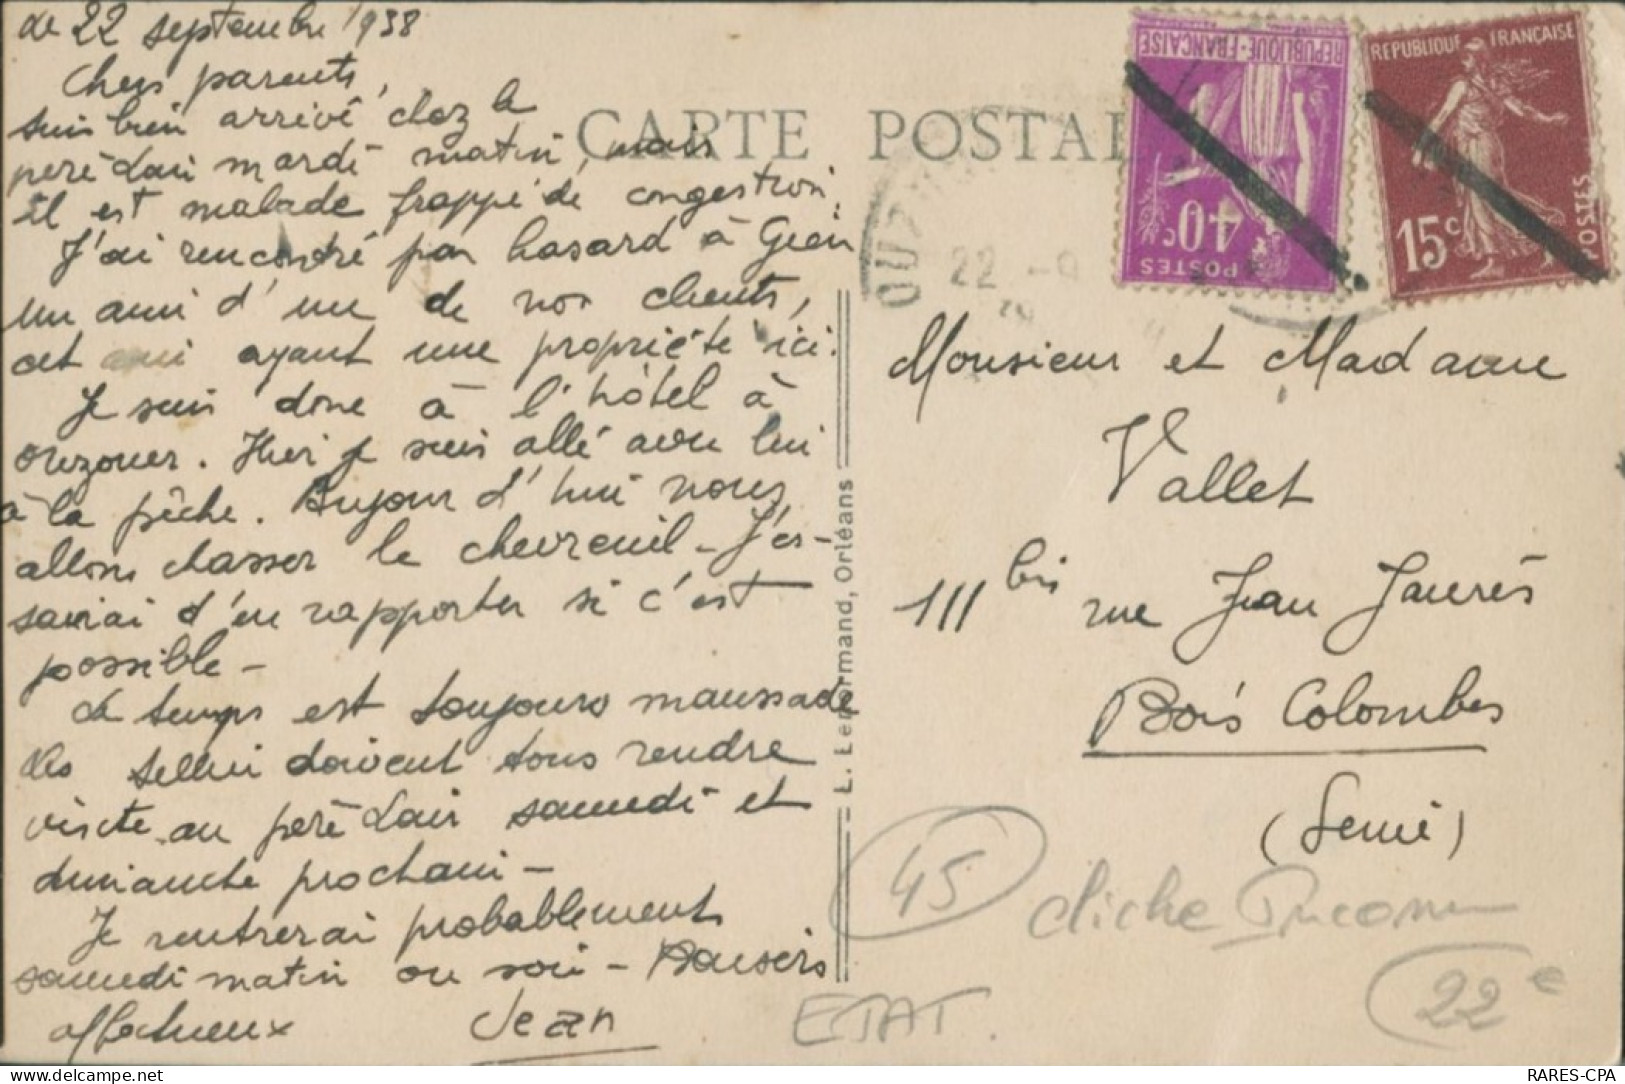 de 22 septembre 1938
Chers parents,
suis bien arrivé chez le
père Lair mardi matin, mais
il est malade frappé de congestion.
J'ai rencontré par hasard à Gien
un ami d'un de nos clients,
cet ami ayant une propriété ici.
Je suis donc à l'hôtel à
Ouzouer. Hier je suis allé avec lui
à la pêche. Aujour d'hui nous
allons chasser le chevreuil - J'es-
saierai d'en rapporter si c'est
possible -
Le temps est toujours maussade
Les Sellier doivent tous rendre
visite au père Lair samedi et
dimanche prochain -
Je rentrerai probablement
samedi matin ou soir - Baisers
affectueux Jean
CARTE POSTALE
OUZ
22 -9
REPUBLIQUE-FRANÇAISE
40c
POSTES
REPUBLIQUE FRANÇAISE
15c
POSTES
Monsieur et Madame
Vallet
111 bis rue Jean Jaurès
Bois Colombes
(Seine)
L. Lenormand, Orléans
45
cliche Inconnu
22 €
ETAT.
RARES-CPA